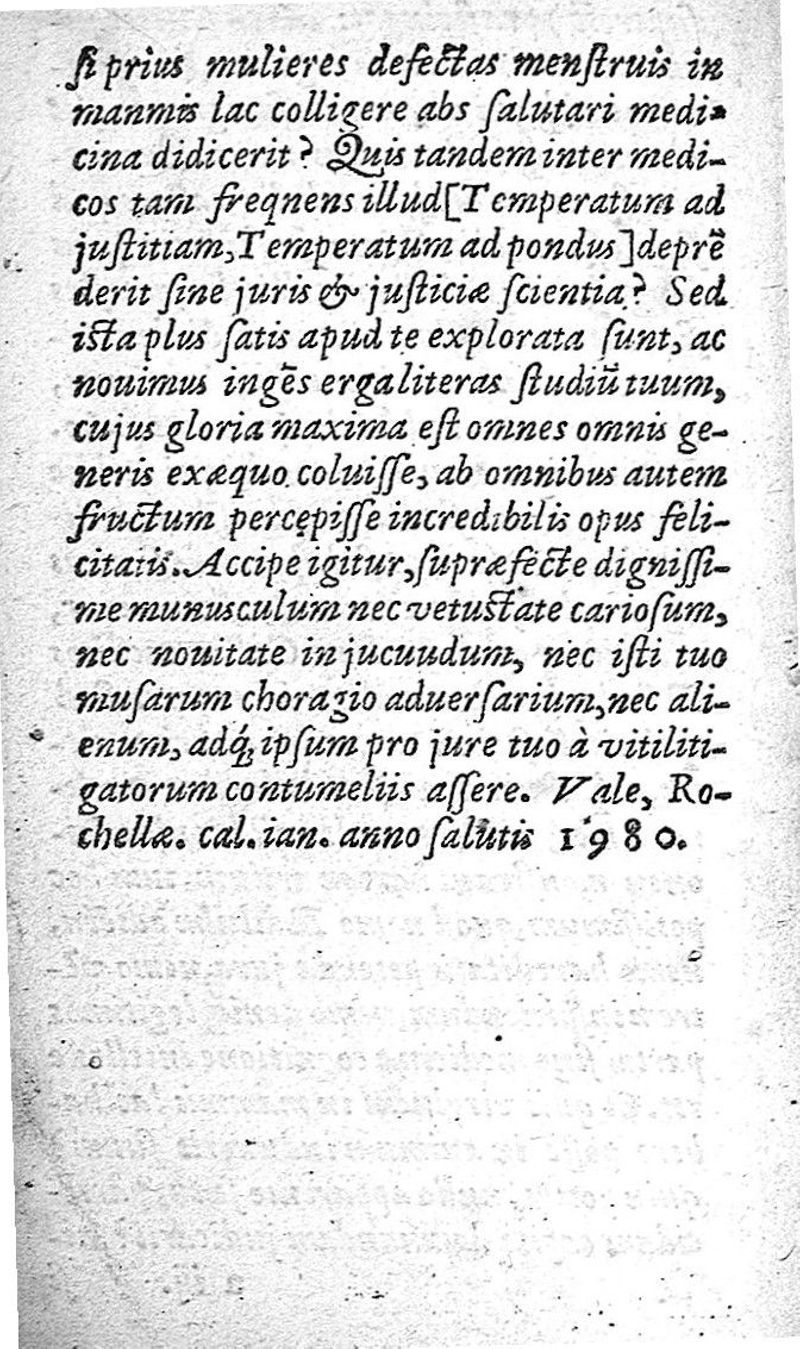 ſi prius mulieres defectas menſtruis in
manmis lac colligere abs ſalutari medi-
cina didicerit? Quis tandem inter medi-
cos tam freqnens illud [Temperatum ad
juſtitiam, Temperatum ad pondus] deprẽ
derit ſine juris & juſticiæ ſcientia? Sed
iſta plus ſatis apud te explorata ſunt, ac
nouimus ingẽs erga literas ſtudiũ tuum,
cujus gloria maxima eſt omnes omnis ge-
neris exæquo coluiſſe, ab omnibus autem
fructum percępiſſe incredibilis opus feli-
citatis. Accipe igitur, ſupræfecte digniſſi-
me munusculum nec vetuſtate carioſum,
nec nouitate injucuudum, nec iſti tuo
muſarum choragio aduerſarium, nec ali-
enum, adq́; ipſum pro jure tuo à vitiliti-
gatorum contumeliis aſſere. Vale, Ro-
chellæ. cal. ian. anno ſalutis 1980.